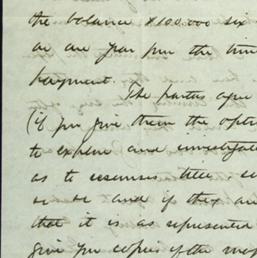 the balance $100.000 six
or one year from the time
payment.
The parties agree
(if you give them the option
to explore and investigate
as to resources titles. co
or so and if they are
that it is as represented
give you copies of the map